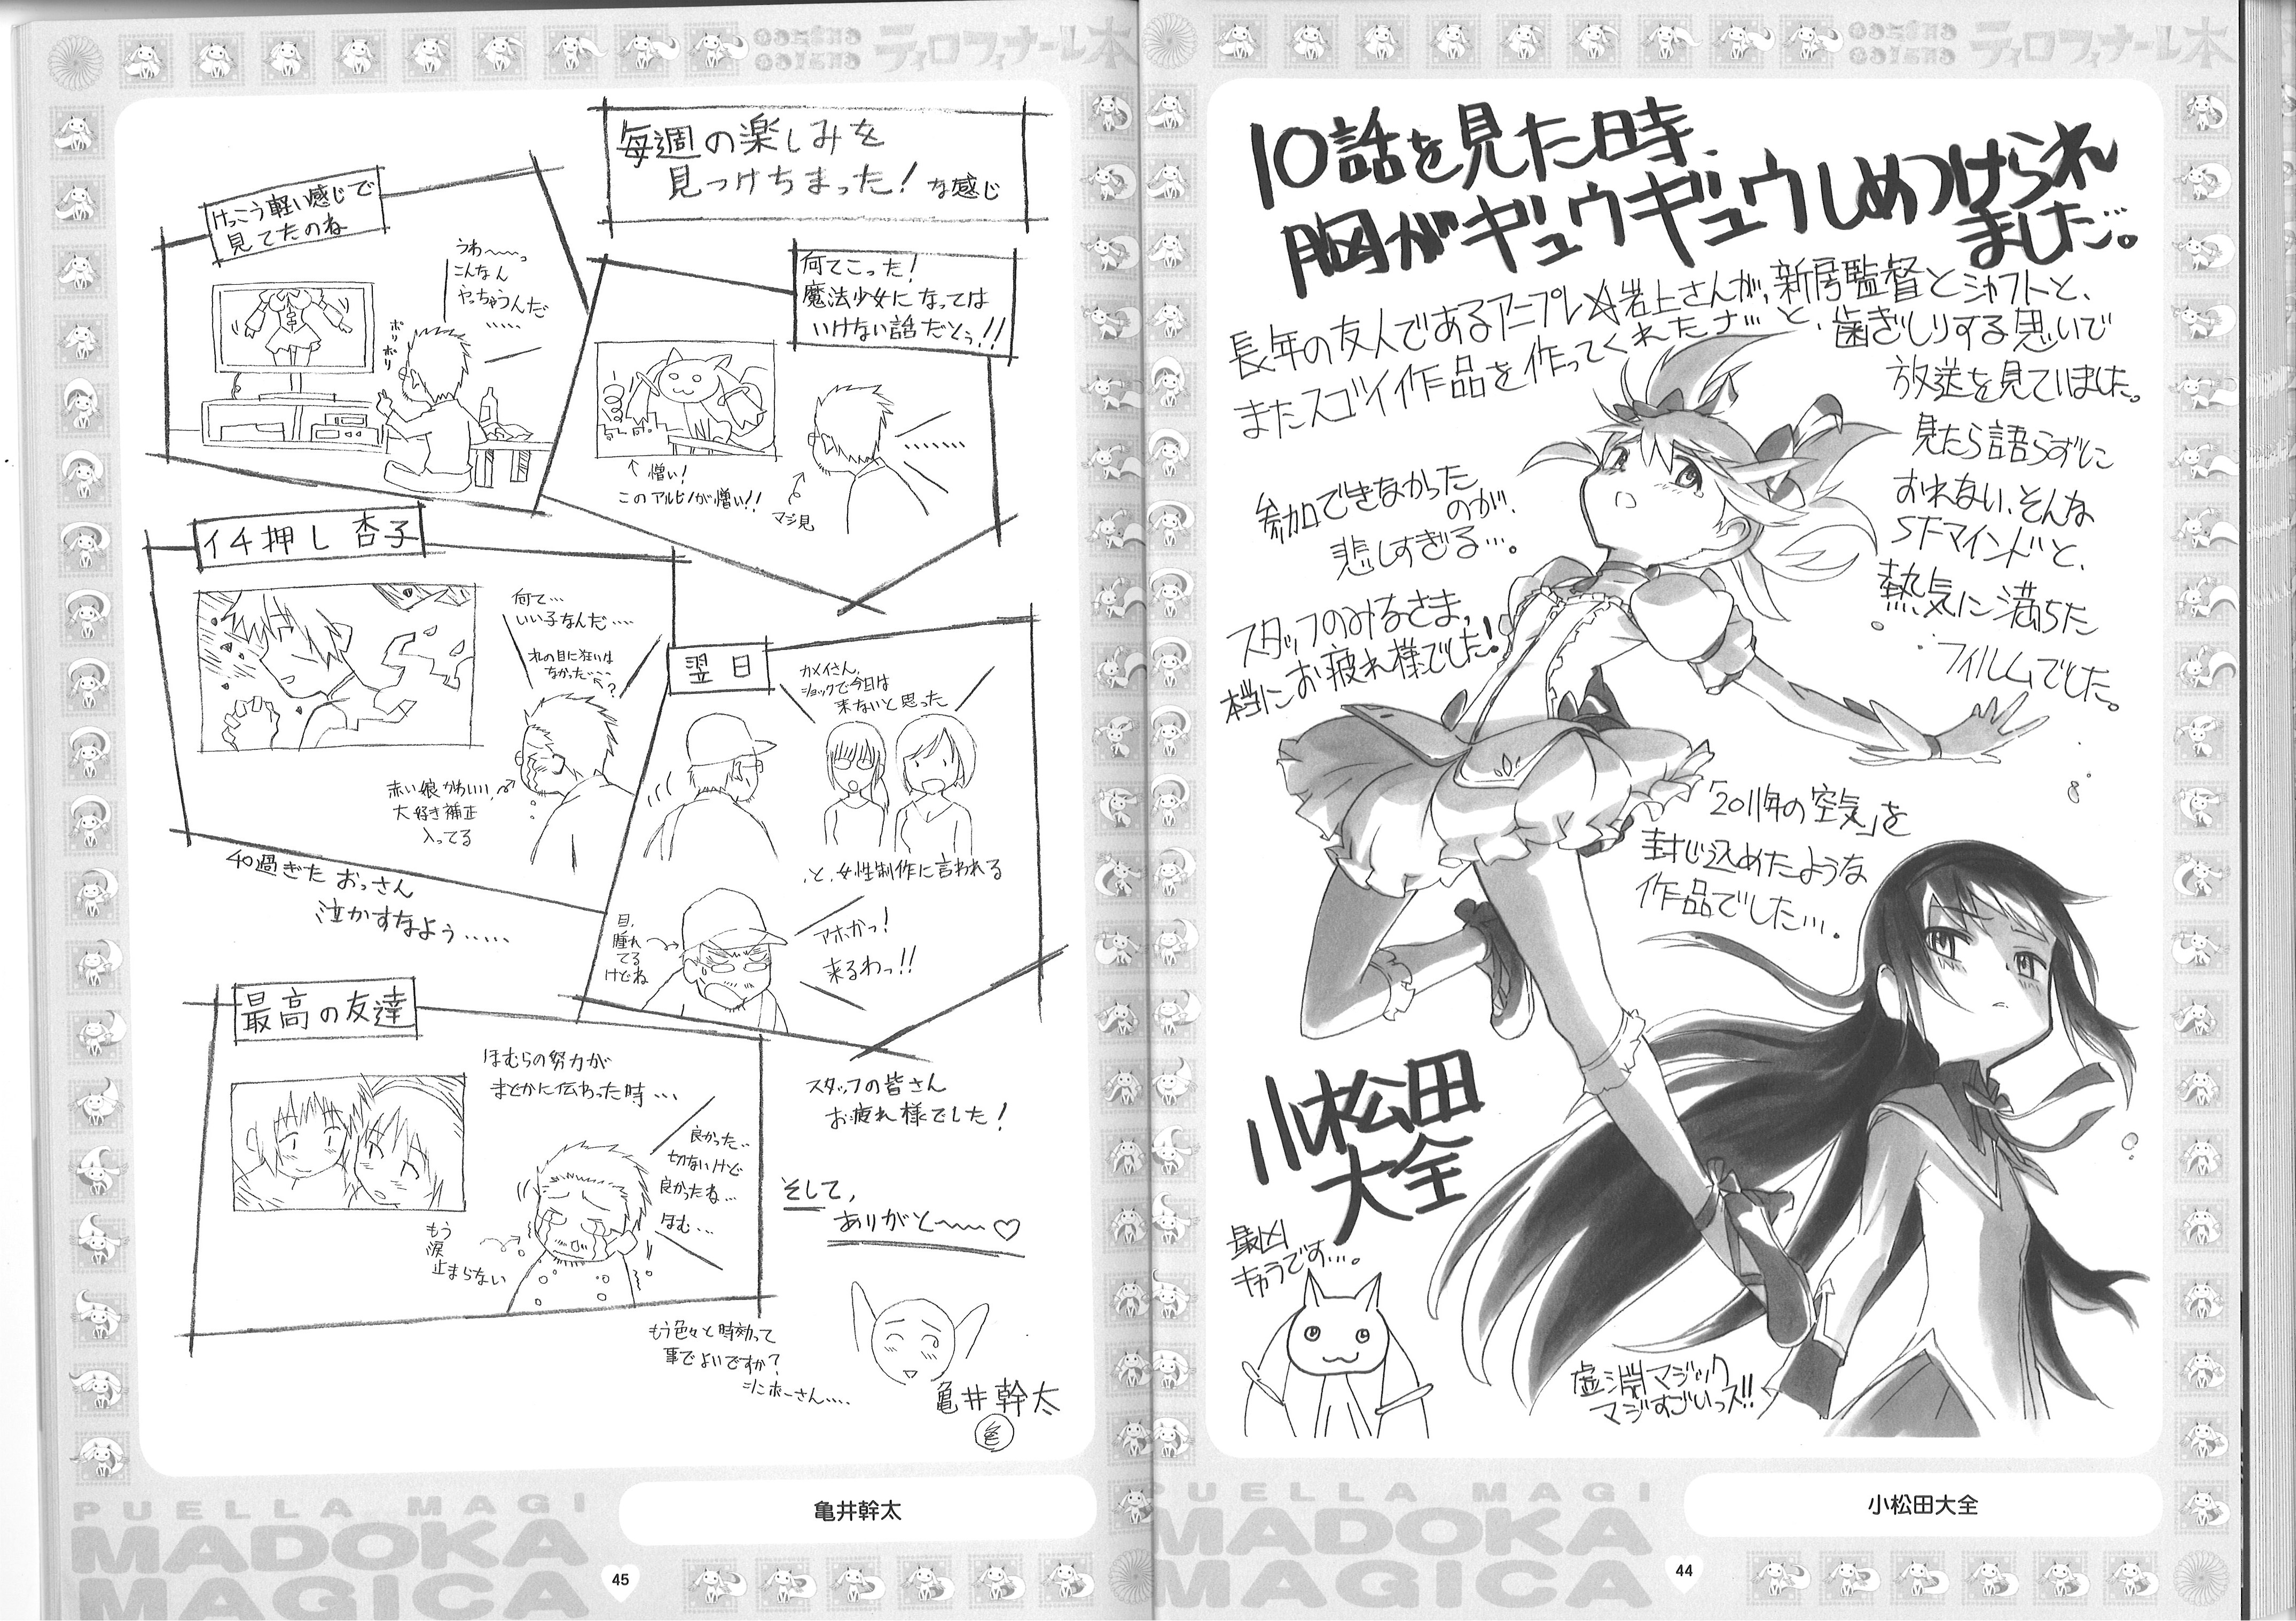 ティロフィナーレ本
10話を見た時、
胸がギュウギュウしめつけられ
ました…。
長年の友人であるアニプレ☆岩上さんが、新房監督とシャフトと、
またスゴイ作品を作ってくれたナ…と、歯ぎしりする思いで
放送を見ていました。
見たら語らずに
おれない、そんな
SFマインドと、
熱気に満ちた
フィルムでした。
参加できなかった
のが、
悲しすぎる…。
スタッフのみなさま、
本当にお疲れ様でした!
「2011年の空気」を
封じ込めたような
作品でした…。
小松田
大全
最凶
キャラです…。
虚淵マジック
マジすごいっス!!
小松田大全
PUELLA MAGI
MADOKA
MAGICA
44
ティロフィナーレ本
毎週の楽しみを
見つけちまった! な感じ
けっこう軽い感じで
見てたのね
うわ〜〜っ
こんなん
やっちゃうんだ
……
ポリ
ポリ
何てこった!
魔法少女になっては
いけない話だとぅ!!
↑憎い!
このアルビノが憎い!!
………
マジ見
イチ押し 杏子
何て…
いい子なんだ…
私の目に狂いは
なかった…
←?
赤い娘かわいい
大好き補正
入ってる
40過ぎたおっさん
泣かすなよぅ……
翌日
カメイさん、
ショックで今日は
来ないと思った
、と、女性制作に言われる
目、
腫れ
てる
けどね
アホかっ!
来るわっ!!
最高の友達
ほむらの努力が
まどかに伝わった時…
良かった…
切ないけど
良かったね…
ほむ…
もう
涙
止まらない
もう色々と時効って
事でよいですか?
シンボーさん…
スタッフの皆さん
お疲れ様でした!
そして、
ありがと〜〜♡
亀井幹太
亀井幹太
PUELLA MAGI
MADOKA
MAGICA
45